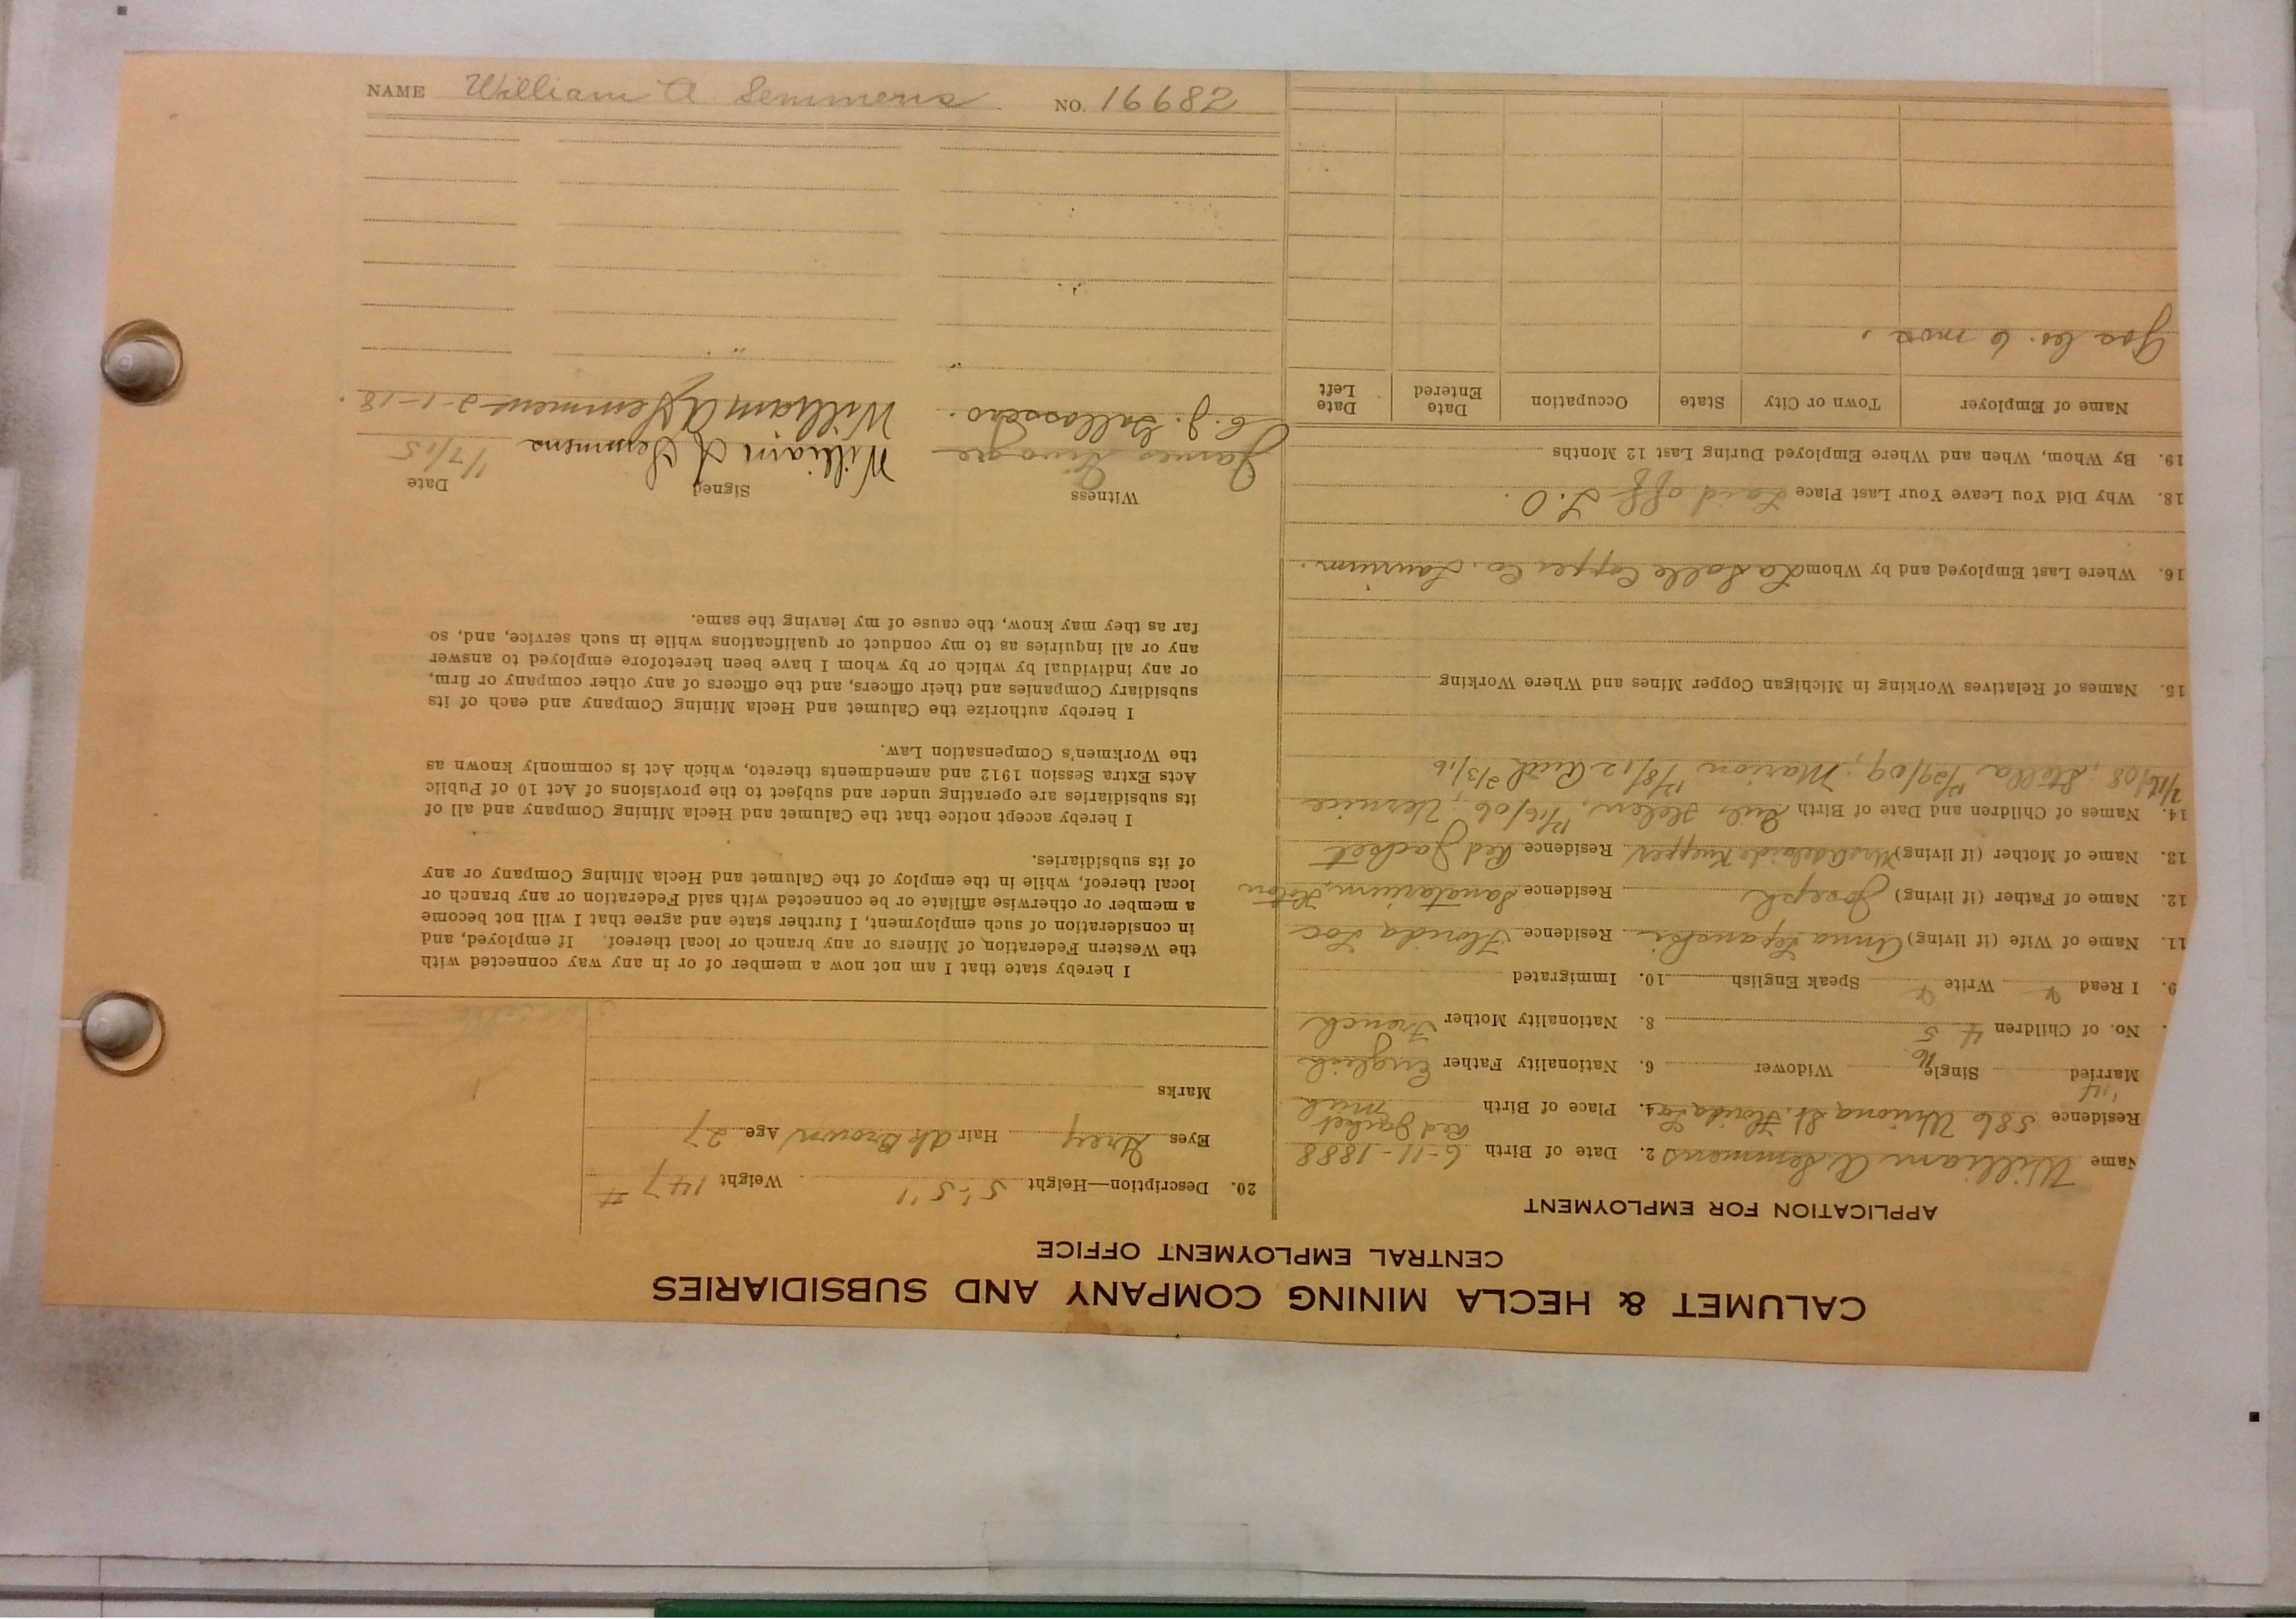 CALUMET & HECLA MINING COMPANY AND SUBSIDIARIES
CENTRAL EMPLOYMENT OFFICE
APPLICATION FOR EMPLOYMENT
Name William A Semmens 2. Date of Birth 6-11-1888
Residence 586 Winona St. Florida Loc. 4. Place of Birth Red Jacket Mich
Married Single Widower 6. Nationality Father English
No. of Children 4 5 8. Nationality Mother French
9. I Read Write Speak English 10. Immigrated
11. Name of Wife (if living) Anna Residence Florida Loc
12. Name of Father (if living) Joseph Residence Sanatarium,
13. Name of Mother (if living) Mrs Adelaide Residence Red Jacket
14. Names of Children and Date of Birth Helen, 12/16/06, Vernice
7/16/08, Stella 12/29/09, Marion 12/8/12 2/3/16
15. Names of Relatives Working in Michigan Copper Mines and Where Working
16. Where Last Employed and by Whom La Salle Copper Co. Laurium.
18. Why Did You Leave Your Last Place Laid off
19. By Whom, When and Where Employed During Last 12 Months
Name of Employer Town or City State Occupation Date Entered Date Left
6 mos.
20. Description—Height 5'-5" Weight 147 #
Eyes Grey Hair dk Brown Age 27
Marks
I hereby state that I am not now a member of or in any way connected with
the Western Federation of Miners or any branch or local thereof. If employed, and
in consideration of such employment, I further state and agree that I will not become
a member or otherwise affiliate or be connected with said Federation or any branch or
local thereof, while in the employ of the Calumet and Hecla Mining Company or any
of its subsidiaries.
I hereby accept notice that the Calumet and Hecla Mining Company and all of
its subsidiaries are operating under and subject to the provisions of Act 10 of Public
Acts Extra Session 1912 and amendments thereto, which Act is commonly known as
the Workmen's Compensation Law.
I hereby authorize the Calumet and Hecla Mining Company and each of its
subsidiary Companies and their officers, and the officers of any other company or firm,
or any individual by which or by whom I have been heretofore employed to answer
any or all inquiries as to my conduct or qualifications while in such service, and, so
far as they may know, the cause of my leaving the same.
Witness Signed Date
James William A Semmens 1/7/15
William A Semmens 2-1-18.
NAME William A Semmens NO. 16682